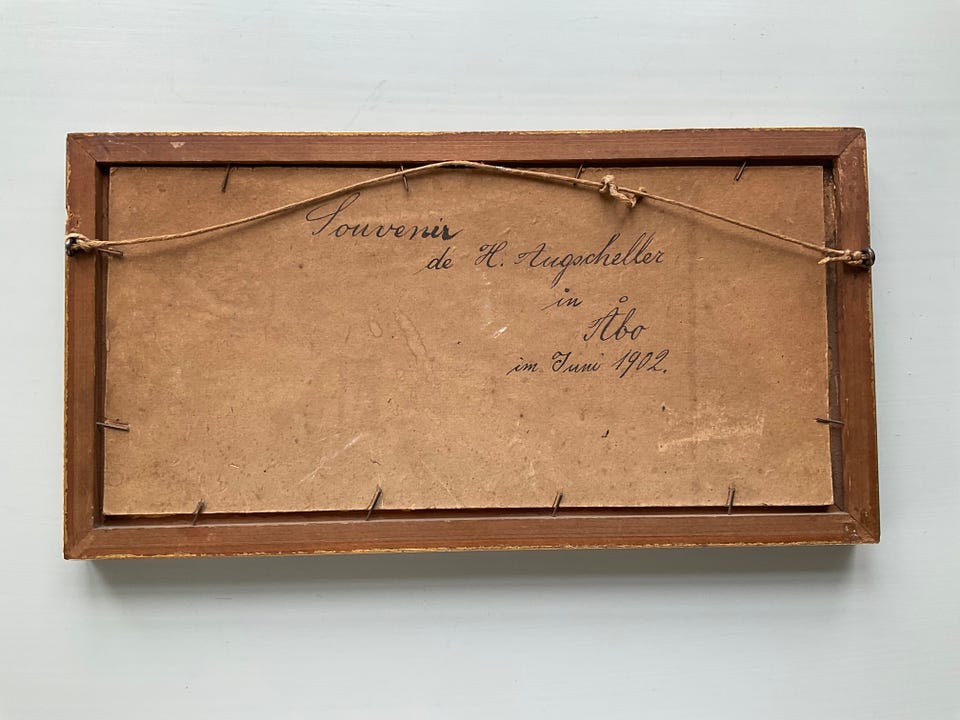 Souvenir
de H. Augscheller
in
Åbo
im Juni 1902.